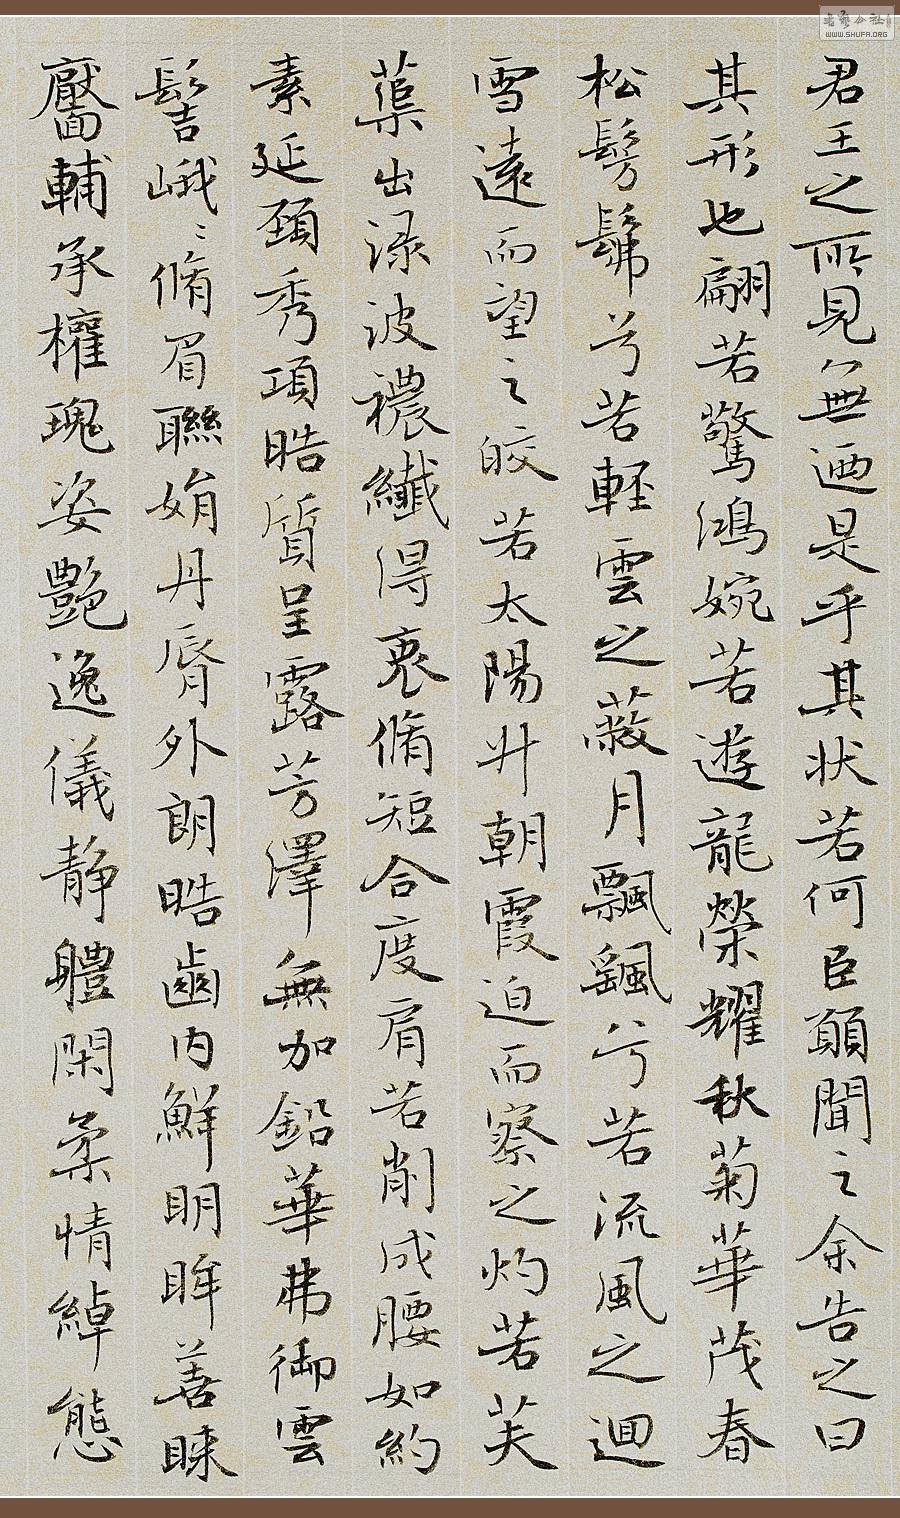 君王之所見無迺是乎其状若何臣願聞之余告之曰
其形也翩若驚鴻婉若遊龍榮耀秋菊華茂春
松髣髴兮若軽雲之蔽月飄飖兮若流風之迴
雪遠而望之皎若太陽升朝霞迫而察之灼若芙
蕖出渌波穠纖得衷脩短合度肩若削成腰如約
素延頚秀項皓質呈露芳澤無加鉛華弗御雲
髻峨〻脩眉聯娟丹脣外朗皓齒内鮮明眸善睞
靨輔承權瑰姿艷逸儀静軆閑柔情綽態
書藝公社
WWW.SHUFA.ORG